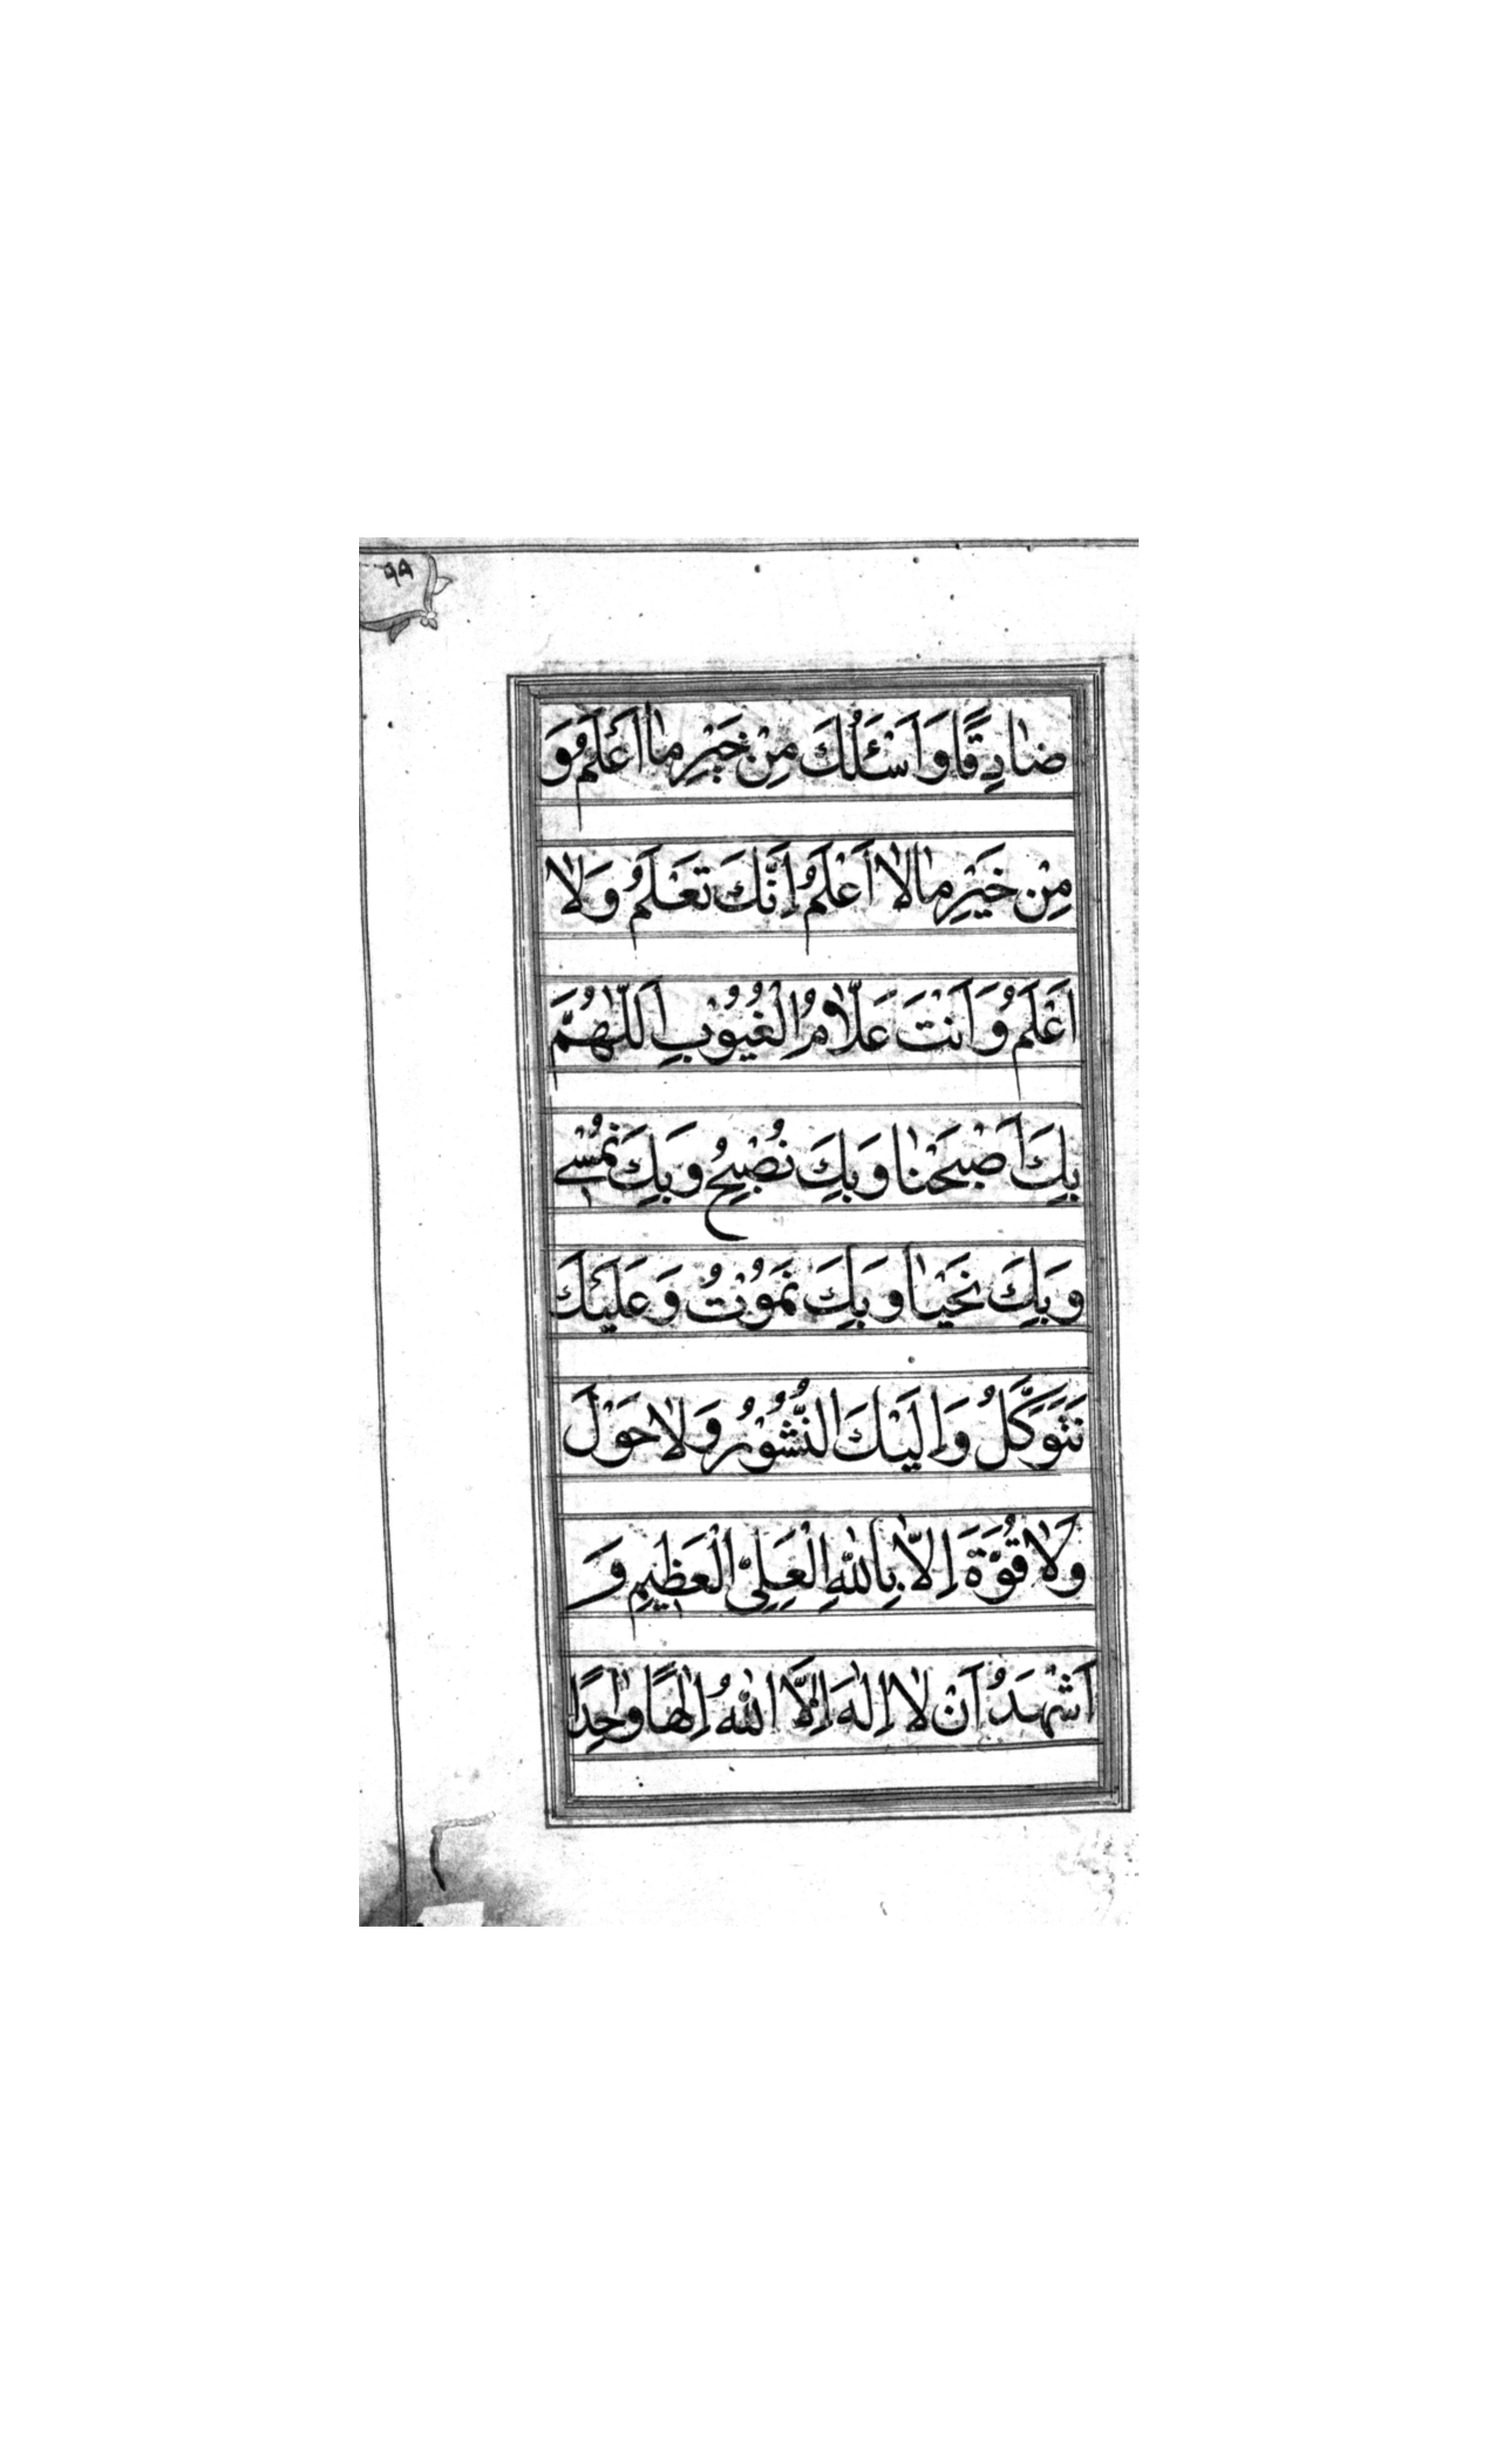 ٩٩
صادِقًا وَاَسْئَلُكَ مِنْ خَيْرِ ما اَعْلَمُ وَ
مِنْ خَيْرِ ما لا اَعْلَمُ اِنَّكَ تَعْلَمُ وَلا
اَعْلَمُ وَ اَنْتَ عَلّامُ الْغُيُوْبِ اَللّهُمَّ
بِكَ اَصْبَحْنا وَبِكَ نُصْبِحُ وَبِكَ نُمْسِي
وَبِكَ نَحْيا وَبِكَ نَمُوْتُ وَعَلَيْكَ
نَتَوَكَّلُ وَاِلَيْكَ النُّشُوْرُ وَلا حَوْلَ
وَلا قُوَّةَ اِلّا بِاللهِ الْعَلِيِّ الْعَظِيمِ وَ
اَشْهَدُ اَنْ لا اِلهَ اِلَّا اللهُ اِلهًا واحِدًا